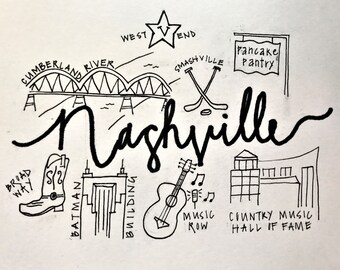 WEST V END
CUMBERLAND RIVER
SMASHVILLE
Pancake
Pantry
Nashville
BROAD
WAY
BATMAN
BUILDING
MUSIC
ROW
COUNTRY MUSIC
HALL OF FAME